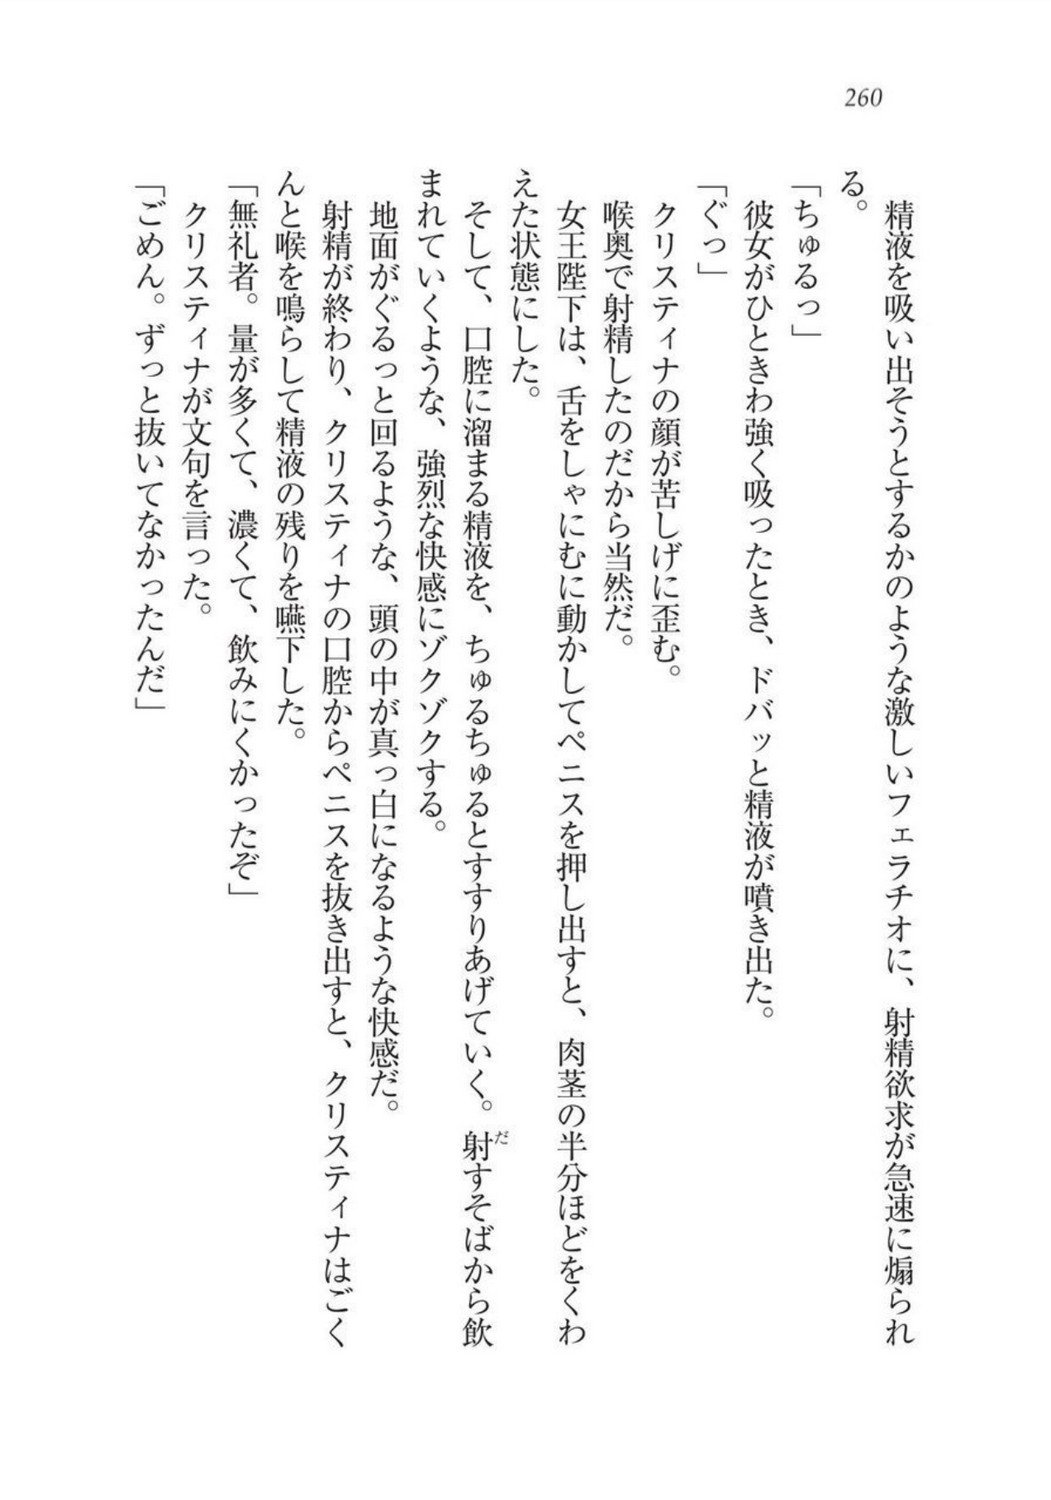 260
精液を吸い出そうとするかのような激しいフェラチオに、射精欲求が急速に煽られ
る。
「ちゅるっ」
彼女がひときわ強く吸ったとき、ドバッと精液が噴き出た。
「ぐっ」
クリスティナの顔が苦しげに歪む。
喉奥で射精したのだから当然だ。
女王陛下は、舌をしゃにむに動かしてペニスを押し出すと、肉茎の半分ほどをくわ
えた状態にした。
そして、口腔に溜まる精液を、ちゅるちゅるとすすりあげていく。射すそばから飲
だ
まれていくような、強烈な快感にゾクゾクする。
地面がぐるっと回るような、頭の中が真っ白になるような快感だ。
射精が終わり、クリスティナの口腔からペニスを抜き出すと、クリスティナはごく
んと喉を鳴らして精液の残りを嚥下した。
「無礼者。量が多くて、濃くて、飲みにくかったぞ」
クリスティナが文句を言った。
「ごめん。ずっと抜いてなかったんだ」